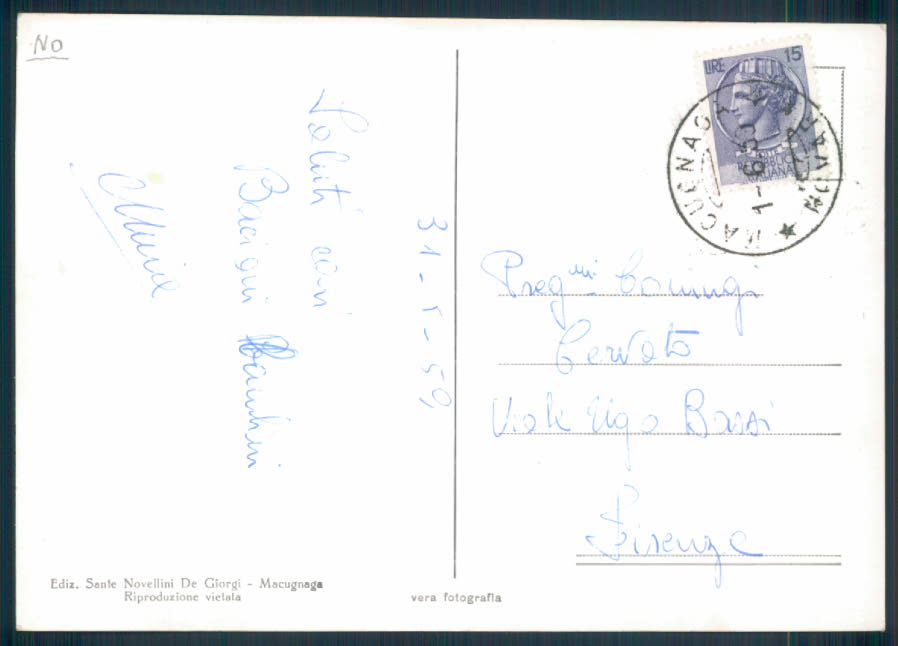 NO
Saluti cari
Bacioni bambini
31-5-59
LIRE 15
REPUBBLICA
ITALIANA
MACUGNAGA
NOVARA
1-6-59
Preg.mi Coniugi
Cervato
Viale Ugo Bassi
Firenze
Ediz. Sante Novellini De Giorgi - Macugnaga
Riproduzione vietata
vera fotografia